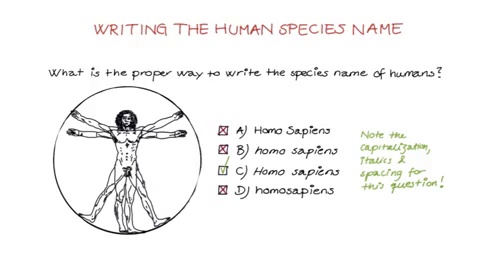 WRITING THE HUMAN SPECIES NAME
What is the proper way to write the species name of humans?
A) Homo Sapiens
B) homo sapiens
C) Homo sapiens
D) homosapiens
Note the
capitalization,
italics &
spacing for
this question!